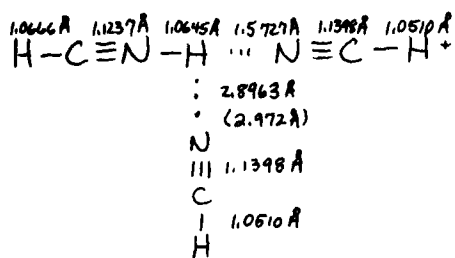 1.0666Å 1.1237Å 1.0645Å 1.5727Å 1.1398Å 1.0510 Å
H – C ≡ N – H ··· N ≡ C – H +
: 2.8963 Å
· (2.972Å)
N
||| 1.1398 Å
C
| 1.0510 Å
H